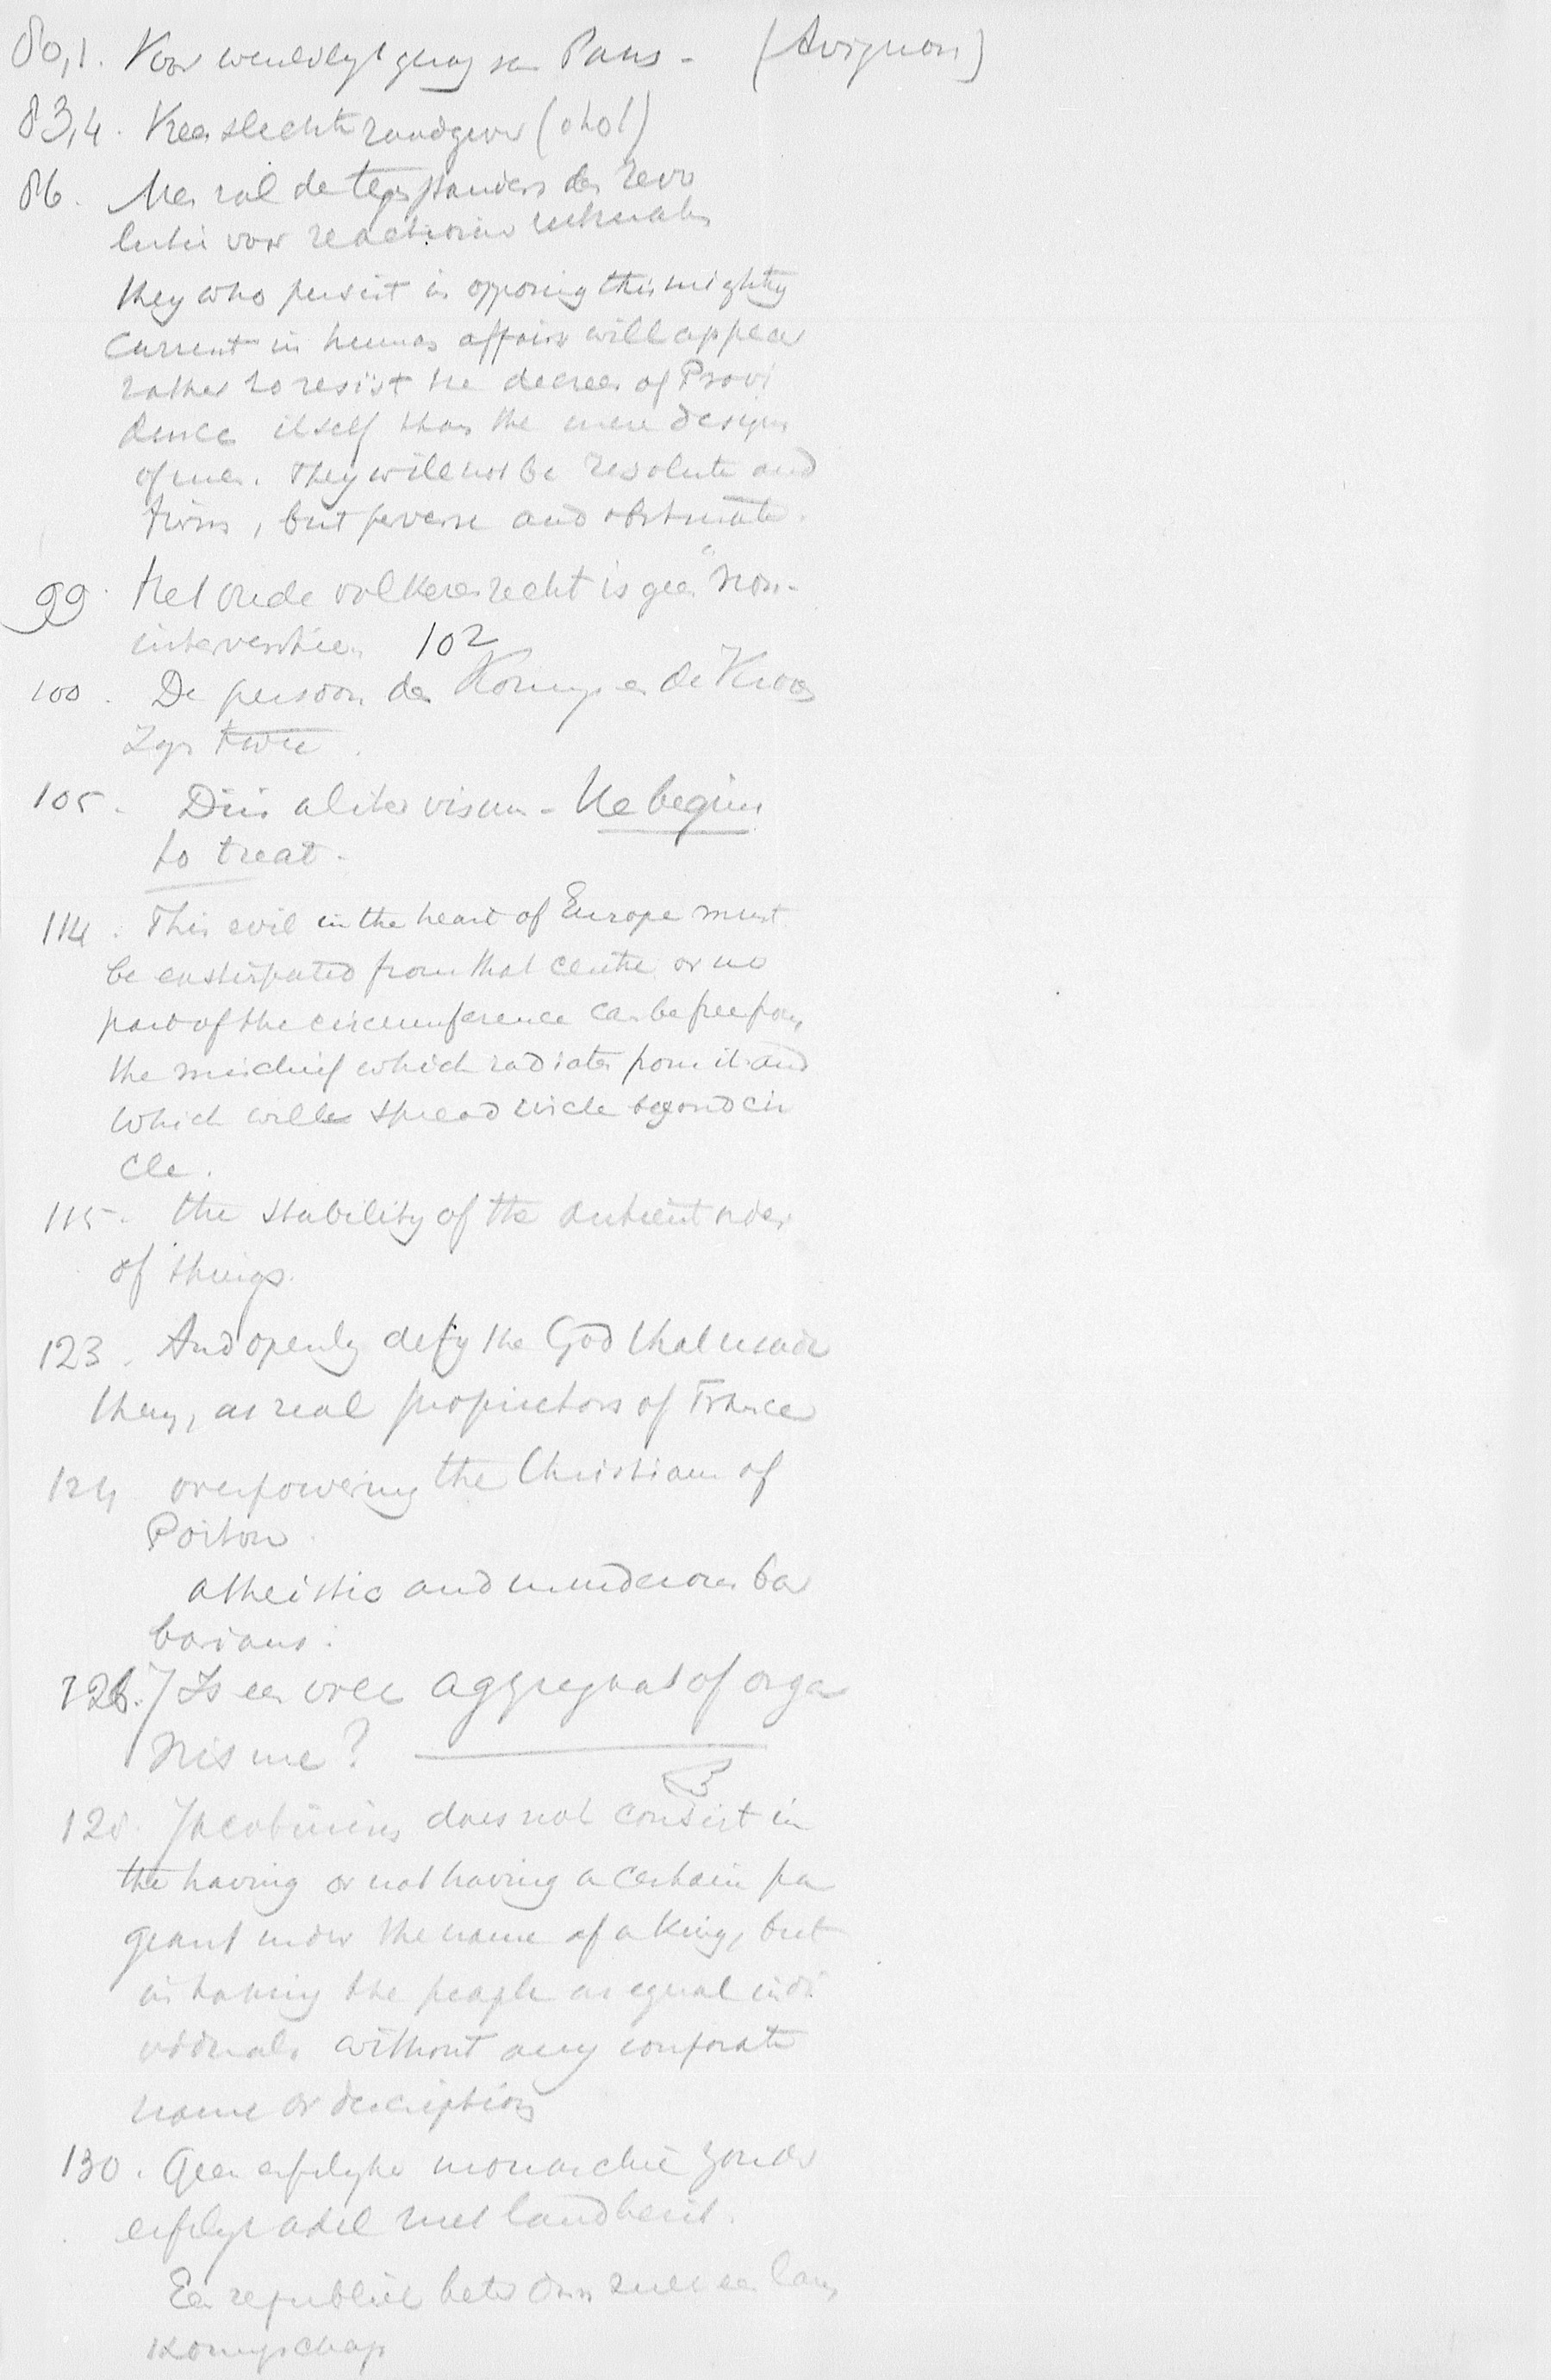 80,1. Voor wereldlyk gezag van Paus - (Avignon)
83,4. Vrees slechte raadgever (chol)
86. Men zal de tegenstanders der Revo
lutie voor reactionair uitmaken
they who persist in opposing this mighty
current in human affairs will appear
rather to resist the decrees of Provi
dence itself than the mere designs
of men. They will not be resolute and
firm, but perverse and obstinate.
99. Het oude volkerenrecht is geen "non-
interventie. 102
100. De persoon des Konings en de Kroon
Zyn twee.
105. Diis aliter visum - He begins
to treat.
114. This evil in the heart of Europe must
be extirpated from that centre or no
part of the circumference can be free from
the mischief which radiates from it and
which will spread circle beyond cir
cle.
115. the stability of the antient order
of things.
123. And openly defy the God that made
them, as real proprietors of France
124 overpowering the Christians of
Poitou
atheistic and murderous bar
barians.
126. Is een vree aggregaat of orga
nisme?
128. Jacobinism does not consist in
the having or not having a certain pa
geant under the name of a king, but
in taking the people as equal indi
viduals without any corporate
name or description
130. Geen erfelyke monarchie zonder
erfelyk adel met landbezit.
Een republiek beter dan zulk een lam
Koningschap